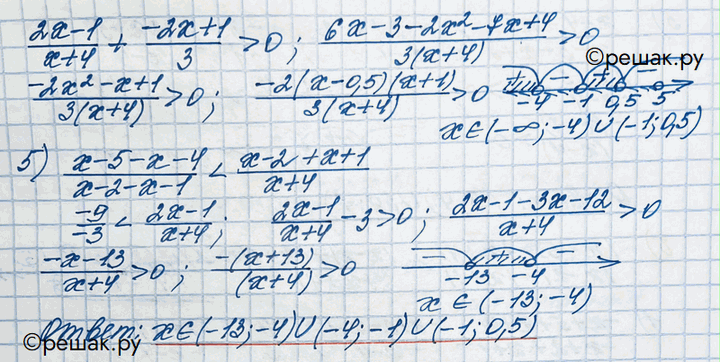 (2x-1)/(x+4) + (-2x+1)/3 > 0; (6x-3-2x²-7x+4)/(3(x+4)) > 0
©решак.ру
(-2x²-x+1)/(3(x+4)) > 0; (-2(x-0,5)(x+1))/(3(x+4)) > 0 + - + - -4 -1 0,5 5
x∈(-∞;-4)∪(-1;0,5)
5) (x-5-x-4)/(x-2-x-1) < (x-2+x+1)/(x+4)
-9/-3 < (2x-1)/(x+4); (2x-1)/(x+4) - 3 > 0; (2x-1-3x-12)/(x+4) > 0
(-x-13)/(x+4) > 0; -(x+13)/(x+4) > 0 - + - -13 -4
x ∈ (-13;-4)
Ответ: x∈(-13;-4)∪(-4;-1)∪(-1;0,5)
©решак.ру